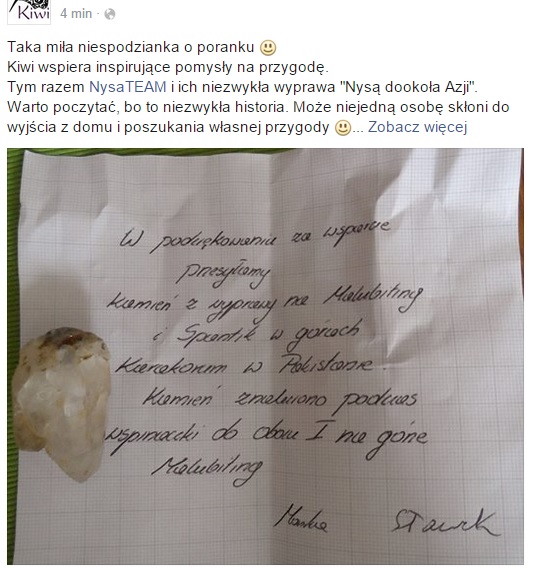 Kiwi
4 min
Taka miła niespodzianka o poranku
Kiwi wspiera inspirujące pomysły na przygodę.
Tym razem NysaTEAM i ich niezwykła wyprawa "Nysą dookoła Azji".
Warto poczytać, bo to niezwykła historia. Może niejedną osobę skłoni do
wyjścia z domu i poszukania własnej przygody ... Zobacz więcej
W podziękowaniu za wsparcie
przesyłamy
kamień z wyprawy na Malubiting
i Spantik w górach
Karakorum w Pakistanie.
Kamień znaleziono podczas
wspinaczki do obozu I na górę
Malubiting
Sławek